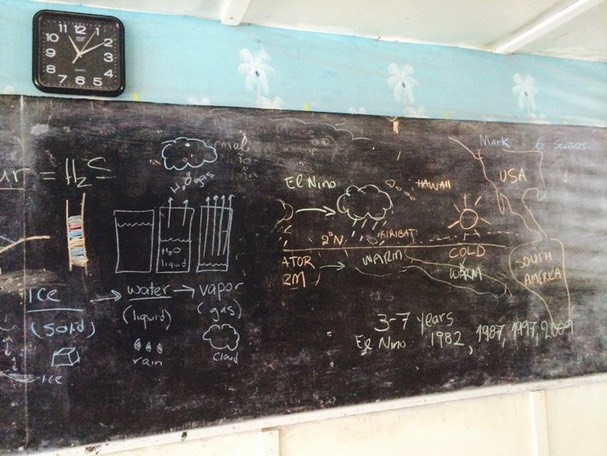 11 12 1
10 2
9 3
8 4
7 6 5
= H2S
H2O gas
H2O
liquid
Ice → water → vapor
(solid) (liquid) (gas)
rain
cloud
Ice
El Nino
HAWAII
Mark 6
USA
2°N KIRIBATI
ATOR → WARM
COLD
WARM
SOUTH
AMERICA
3-7 years
El Nino 1982, 1987, 1997, 2009